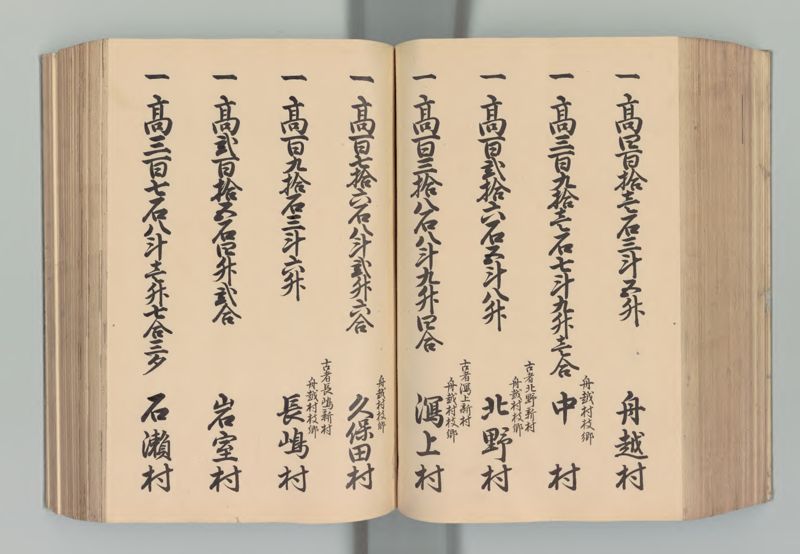 一 高四百拾壱石三斗五升 舟越村
舟越村枝郷
一 高三百九拾壱石七斗九升壱合 中村
古者北野新村
舟越村枝郷
一 高百弐拾六石五斗八升 北野村
古者潟上新村
舟越村枝郷
一 高百三拾八石八斗九升四合 潟上村
舟越村枝郷
一 高百七拾六石八斗弐升六合 久保田村
古者長嶋新村
舟越村枝郷
一 高百九拾石三斗六升 長嶋村
一 高弐百拾五石四升弐合 岩室村
一 高三百七石八斗壱升七合三夕 石瀬村